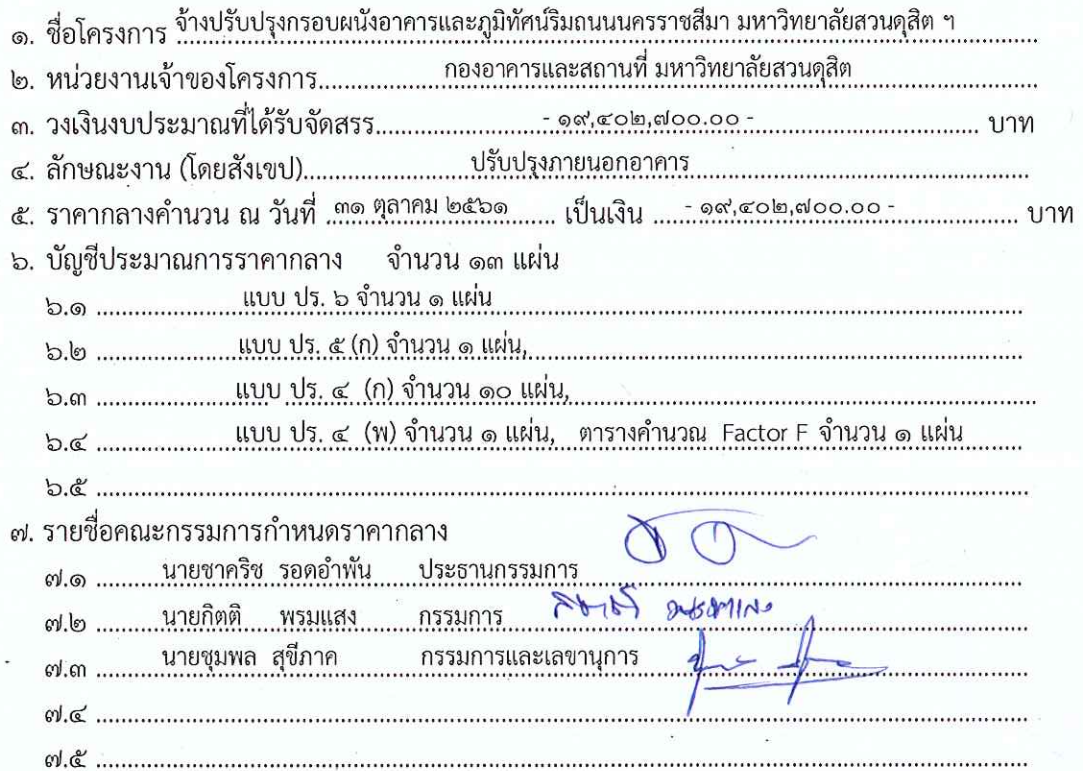 ๑. ชื่อโครงการ จ้างปรับปรุงกรอบผนังอาคารและภูมิทัศน์ริมถนนนครราชสีมา มหาวิทยาลัยสวนดุสิต ฯ
๒. หน่วยงานเจ้าของโครงการ กองอาคารและสถานที่ มหาวิทยาลัยสวนดุสิต
๓. วงเงินงบประมาณที่ได้รับจัดสรร - ๑๙,๔๐๒,๗๐๐.๐๐ - บาท
๔. ลักษณะงาน (โดยสังเขป) ปรับปรุงภายนอกอาคาร
๕. ราคากลางคำนวน ณ วันที่ ๓๑ ตุลาคม ๒๕๖๑ เป็นเงิน - ๑๙,๔๐๒,๗๐๐.๐๐ - บาท
๖. บัญชีประมาณการราคากลาง จำนวน ๑๓ แผ่น
๖.๑ แบบ ปร. ๖ จำนวน ๑ แผ่น
๖.๒ แบบ ปร. ๕ (ก) จำนวน ๑ แผ่น,
๖.๓ แบบ ปร. ๔ (ก) จำนวน ๑๐ แผ่น,
๖.๔ แบบ ปร. ๔ (พ) จำนวน ๑ แผ่น, ตารางคำนวณ Factor F จำนวน ๑ แผ่น
๖.๕
๗. รายชื่อคณะกรรมการกำหนดราคากลาง
๗.๑ นายชาคริช รอดอำพัน ประธานกรรมการ
๗.๒ นายกิตติ พรมแสง กรรมการ
๗.๓ นายชุมพล สุขีภาค กรรมการและเลขานุการ
๗.๔
๗.๕